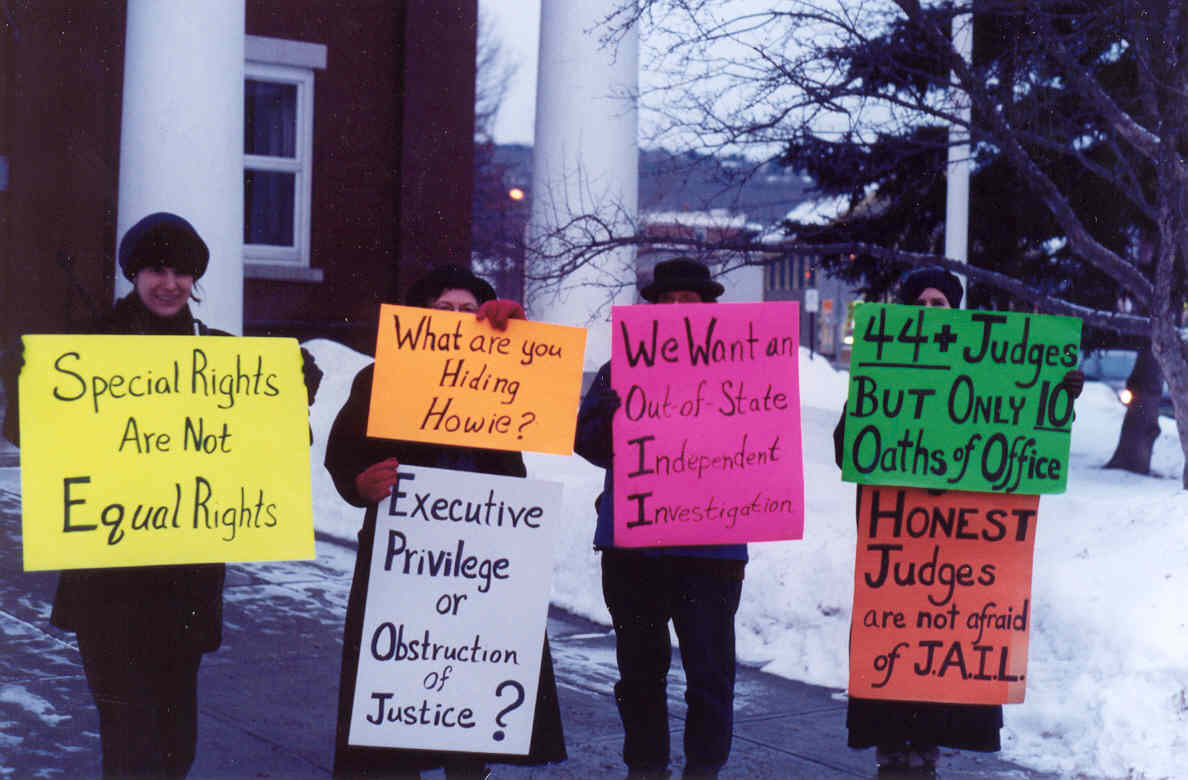 Special Rights
Are Not
Equal Rights
What are you
Hiding
Howie?
Executive
Privilege
or
Obstruction
of
Justice?
We Want an
Out-of-State
Independent
Investigation
44+ Judges
But Only 10
Oaths of Office
Honest
Judges
are not afraid
of J.A.I.L.